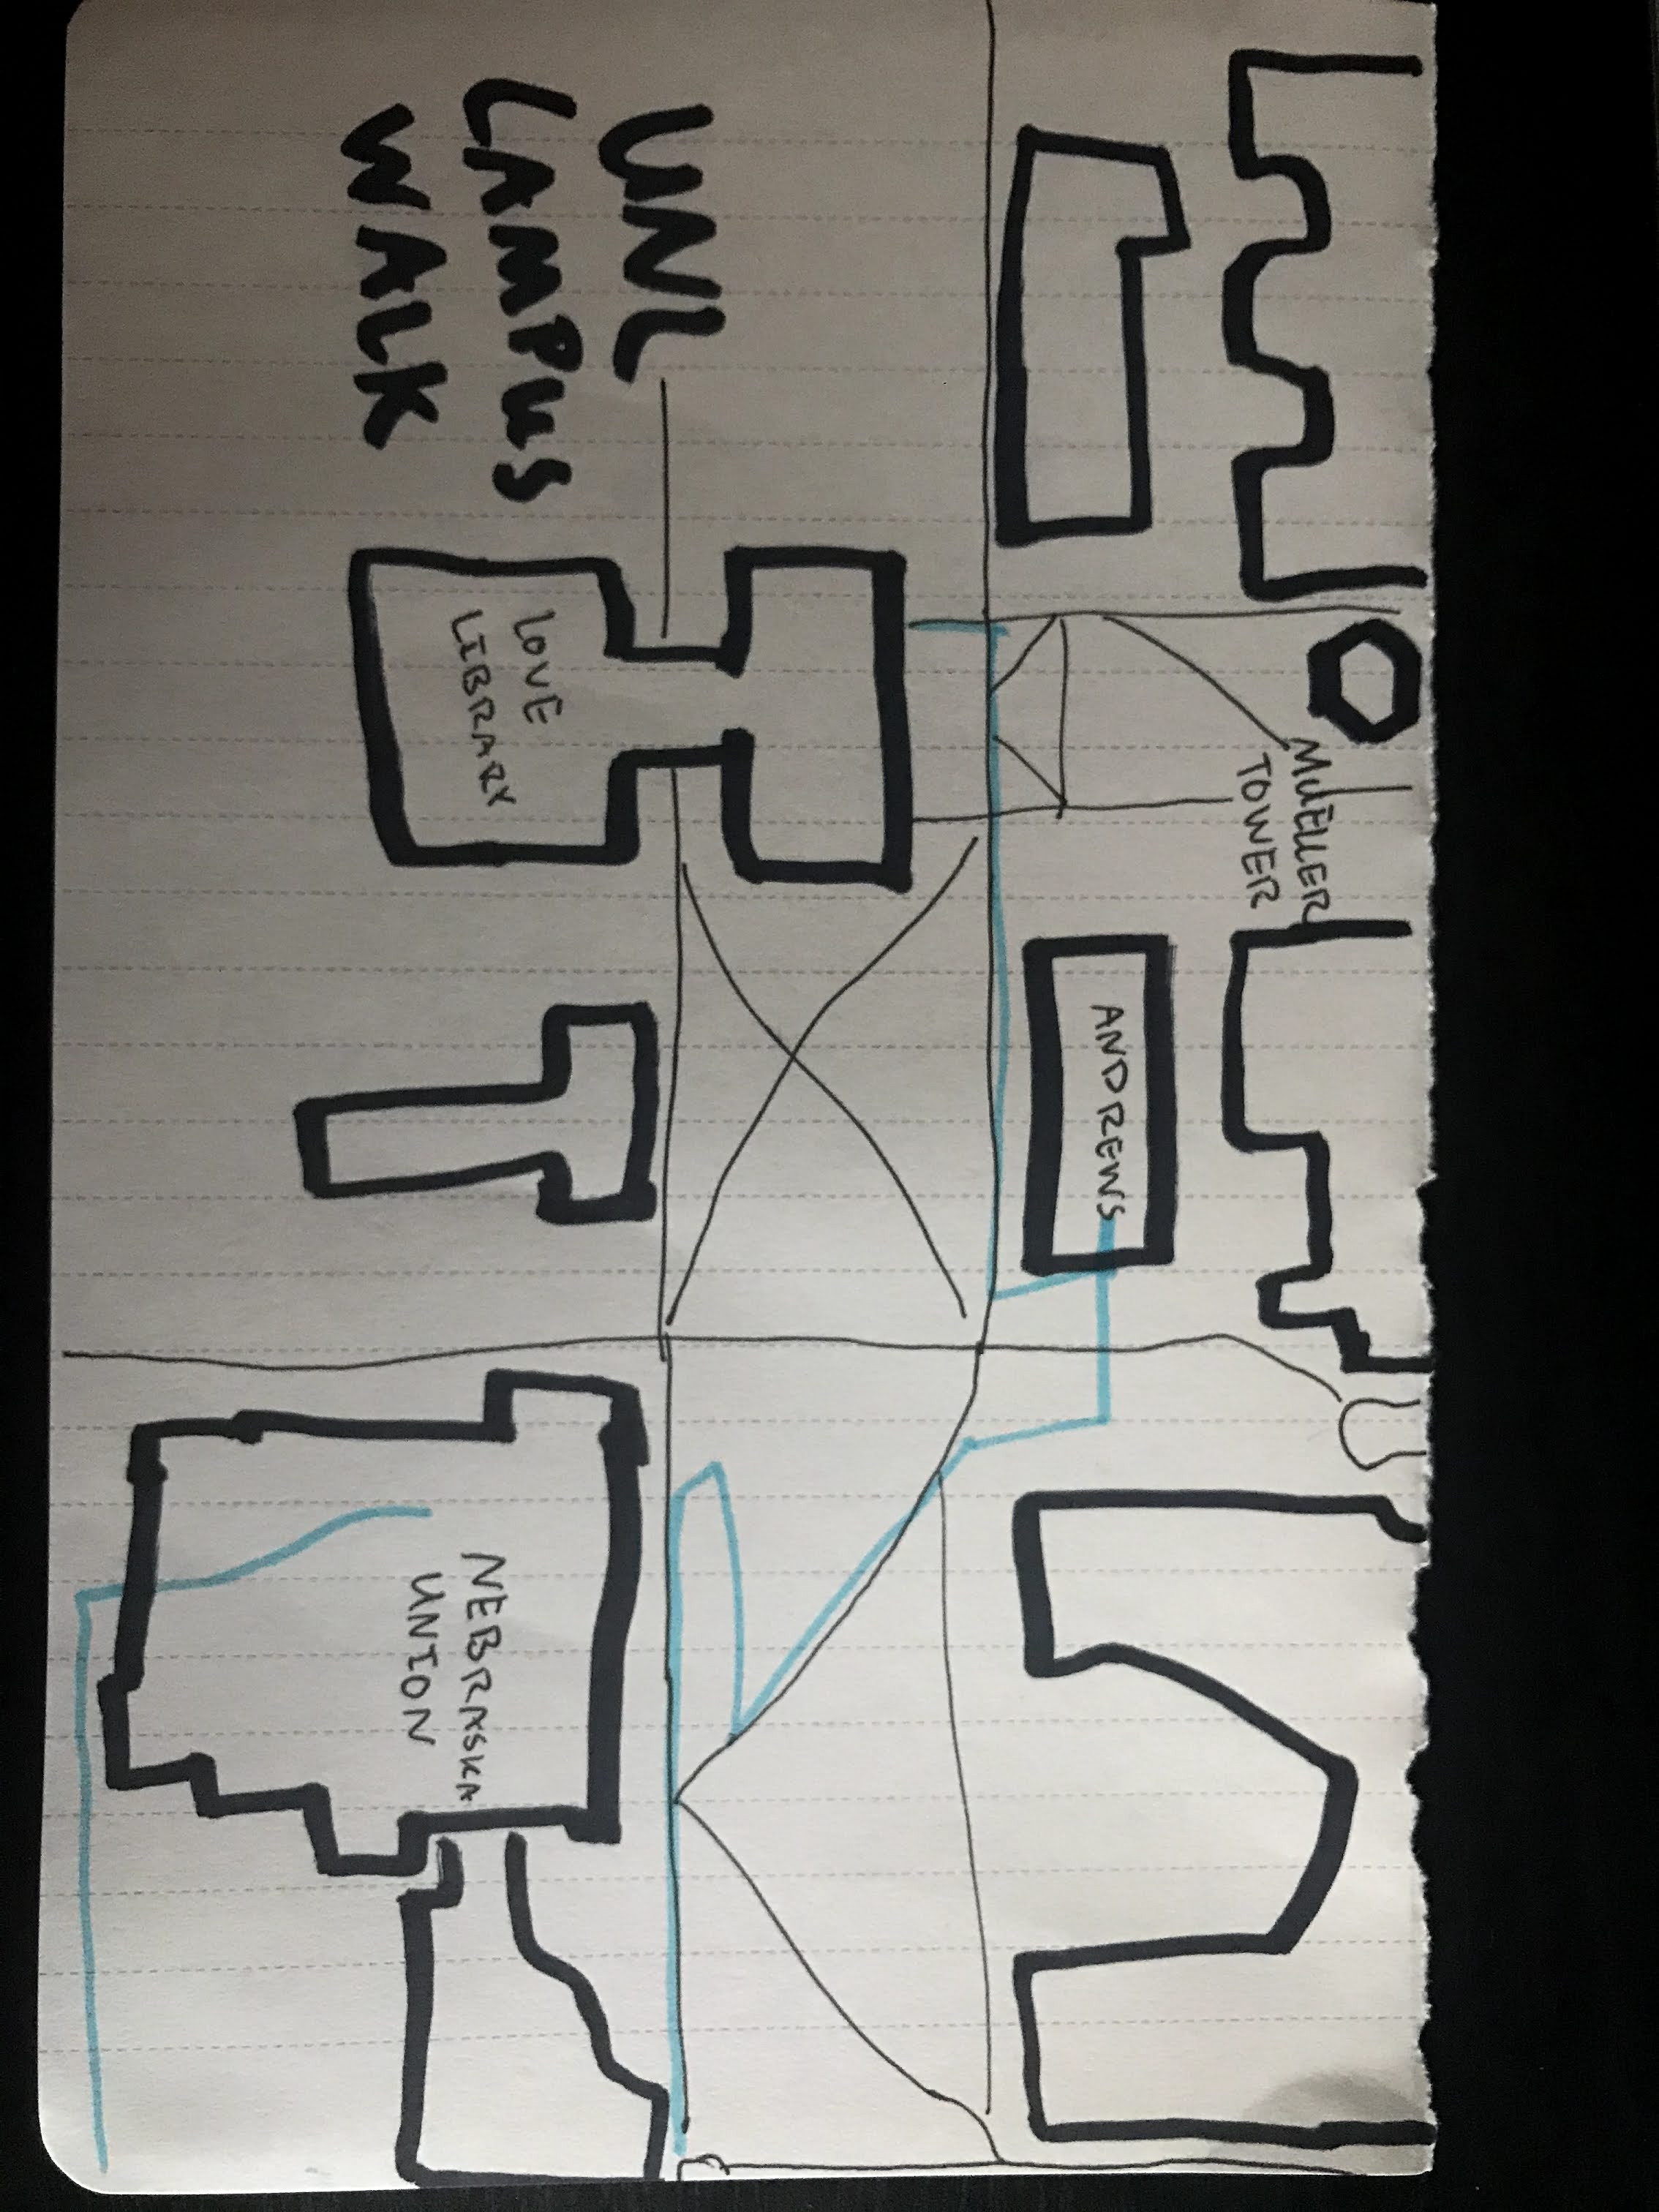 MUELLER
TOWER
ANDREWS
UNL
CAMPUS
WALK
LOVE
LIBRARY
NEBRASKA
UNION